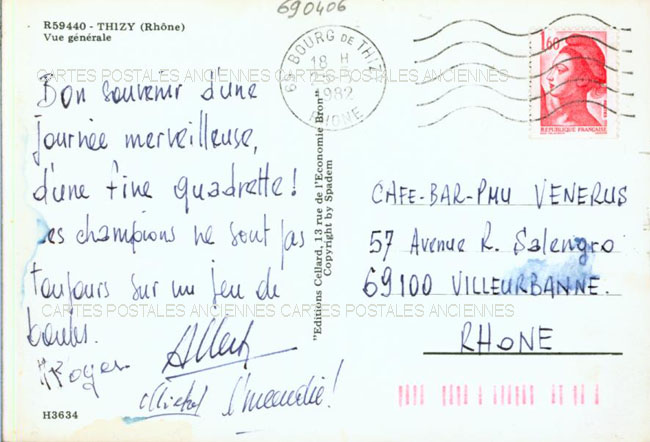 690406
R59440 - THIZY (Rhône)
Vue générale
69 BOURG DE THIZY
18 H
1982
RHONE
1,60
REPUBLIQUE FRANÇAISE
CARTES POSTALES ANCIENNES CARTES POSTALES ANCIENNES
Bon souvenir d'une
journée merveilleuse,
d'une fine quadrette!
Les champions ne sont pas
toujours sur un jeu de
boules.
Royer
Albert
Michel l'incendie!
"Editions Cellard, 13 rue de l'Economie Bron"
Copyright by Spadem
CAFE-BAR-PMU VENERUS
57 Avenue R. Salengro
69100 VILLEURBANNE.
RHONE
CARTES POSTALES ANCIENNES CARTES POSTALES ANCIENNES
H3634